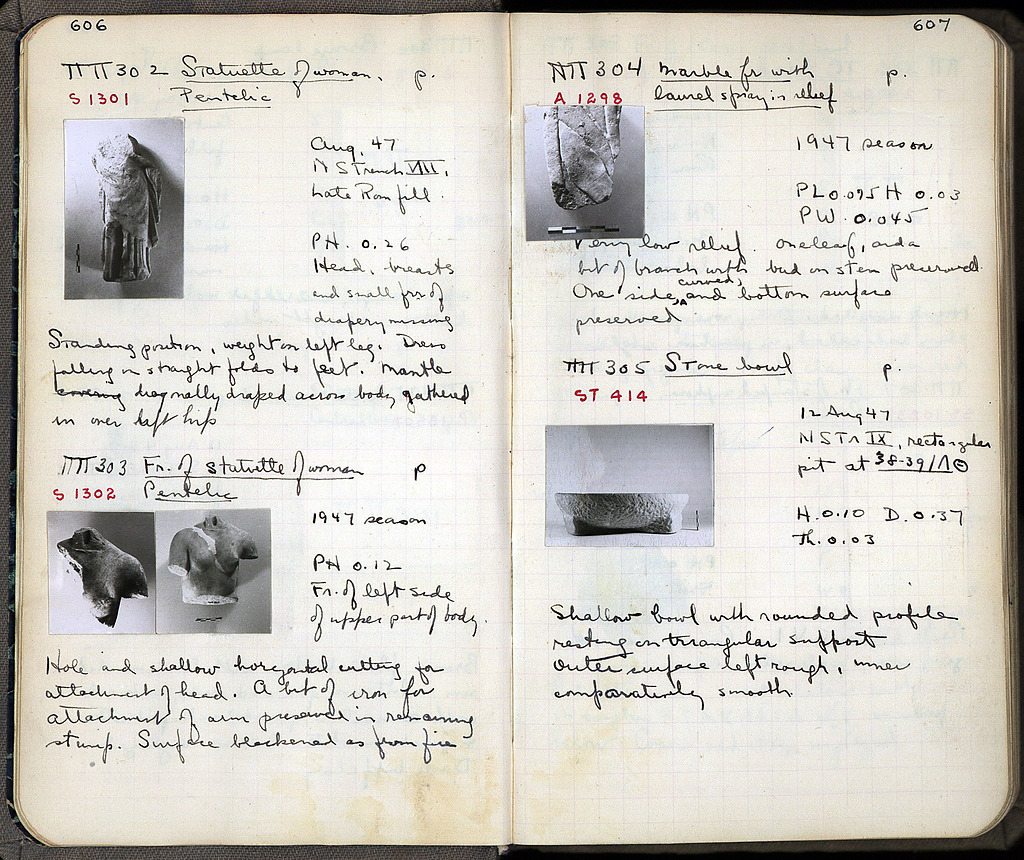 606
ΠΠ 302 Statuette of woman, p.
S 1301 Pentelic
Aug. 47
N S Trench VIII,
Late Rom fill.
PH. 0.26
Head, breasts
and small frs of
drapery missing
Standing position, weight on left leg. Dress
falling in straight folds to feet. Mantle
covering diagonally draped across body gathered
in over left hip
ΠΠ 303 Fr. of statuette of woman p
S 1302 Pentelic
1947 season
PH 0.12
Fr. of left side
of upper part of body.
Hole and shallow horizontal cutting for
attachment of head. A bit of iron for
attachment of arm preserved in remaining
stump. Surface blackened as from fire
607
ΠΠ 304 Marble fr with p.
A 1298 laurel spray in relief
1947 season
PL 0.095 H 0.03
PW. 0.045
Very low relief. One leaf, and a
bit of branch with bud on stem preserved.
One side, curved, and bottom surface
preserved
ΠΠ 305 Stone bowl p.
ST 414
12 Aug 47
N S Tr IX, rectangular
pit at 38-39/ΛΘ
H. 0.10 D. 0.37
Th. 0.03
Shallow bowl with rounded profile
resting on triangular support
Outer surface left rough, inner
comparatively smooth.